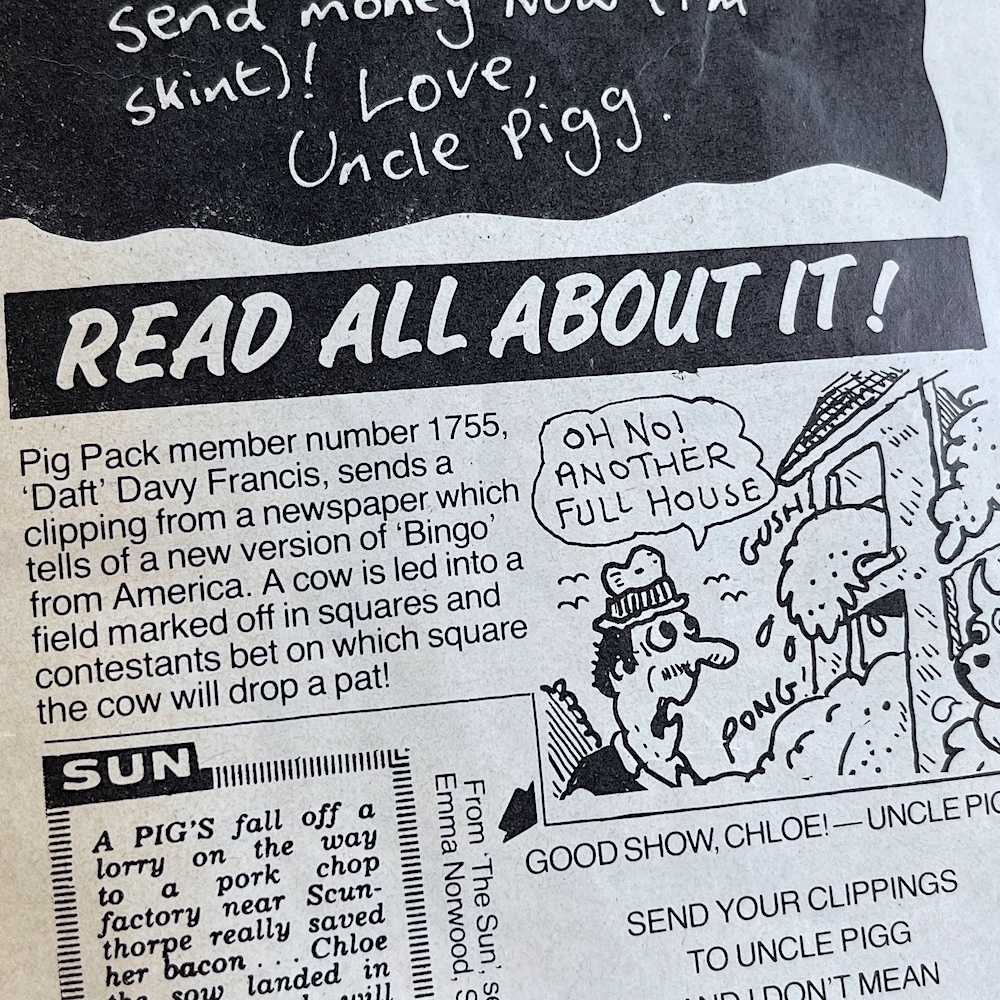 send money now (I'm
skint)! Love,
Uncle Pigg.
READ ALL ABOUT IT!
Pig Pack member number 1755,
'Daft' Davy Francis, sends a
clipping from a newspaper which
tells of a new version of 'Bingo'
from America. A cow is led into a
field marked off in squares and
contestants bet on which square
the cow will drop a pat!
OH NO!
ANOTHER
FULL HOUSE
GUSH!
PONG!
SUN
A PIG'S fall off a
lorry on the way
to a pork chop
factory near Scun-
thorpe really saved
her bacon . . . Chloe
the sow landed in
will
From 'The Sun',
Emma Norwood,
GOOD SHOW, CHLOE! — UNCLE
SEND YOUR CLIPPINGS
TO UNCLE PIGG
AND I DON'T MEAN